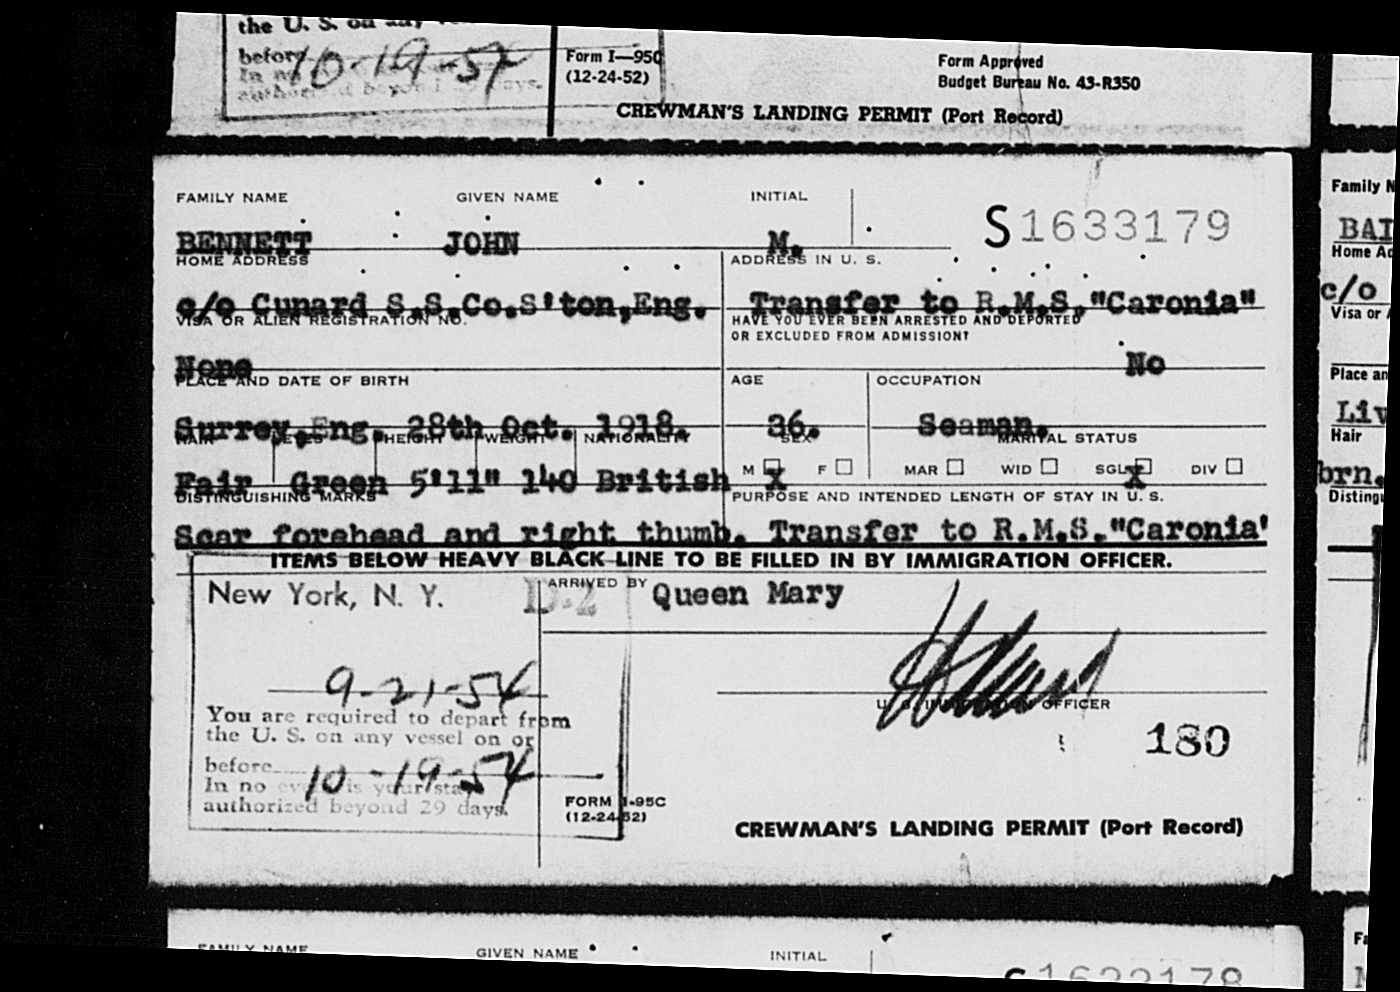 the U. S. on any
before 10-19-54
In no
authorized beyond 29 days.
Form I—95C
(12-24-52)
Form Approved
Budget Bureau No. 43-R350
CREWMAN'S LANDING PERMIT (Port Record)
FAMILY NAME GIVEN NAME INITIAL
S1633179
BENNETT JOHN M.
HOME ADDRESS ADDRESS IN U. S.
c/o Cunard S.S.Co.S'ton,Eng. Transfer to R.M.S."Caronia"
VISA OR ALIEN REGISTRATION NO. HAVE YOU EVER BEEN ARRESTED AND DEPORTED
OR EXCLUDED FROM ADMISSION?
None No
PLACE AND DATE OF BIRTH AGE OCCUPATION
Surrey,Eng. 28th Oct. 1918. 36. Seaman.
HAIR EYES HEIGHT WEIGHT NATIONALITY SEX MARITAL STATUS
M X F MAR WID SGL X DIV
Fair Green 5'11" 140 British
DISTINGUISHING MARKS PURPOSE AND INTENDED LENGTH OF STAY IN U. S.
Scar forehead and right thumb. Transfer to R.M.S."Caronia'
ITEMS BELOW HEAVY BLACK LINE TO BE FILLED IN BY IMMIGRATION OFFICER.
New York, N. Y. D-2 ARRIVED BY Queen Mary
9-21-54
U. S. IMMIGRATION OFFICER
You are required to depart from
the U. S. on any vessel on or
before 10-19-54
In no event is your stay
authorized beyond 29 days.
180
FORM I-95C
(12-24-52)
CREWMAN'S LANDING PERMIT (Port Record)
FAMILY NAME GIVEN NAME INITIAL
S1633178
Family N
BAI
Home Ad
c/o
Visa or A
Place an
Liv
Hair
brn.
Distingu